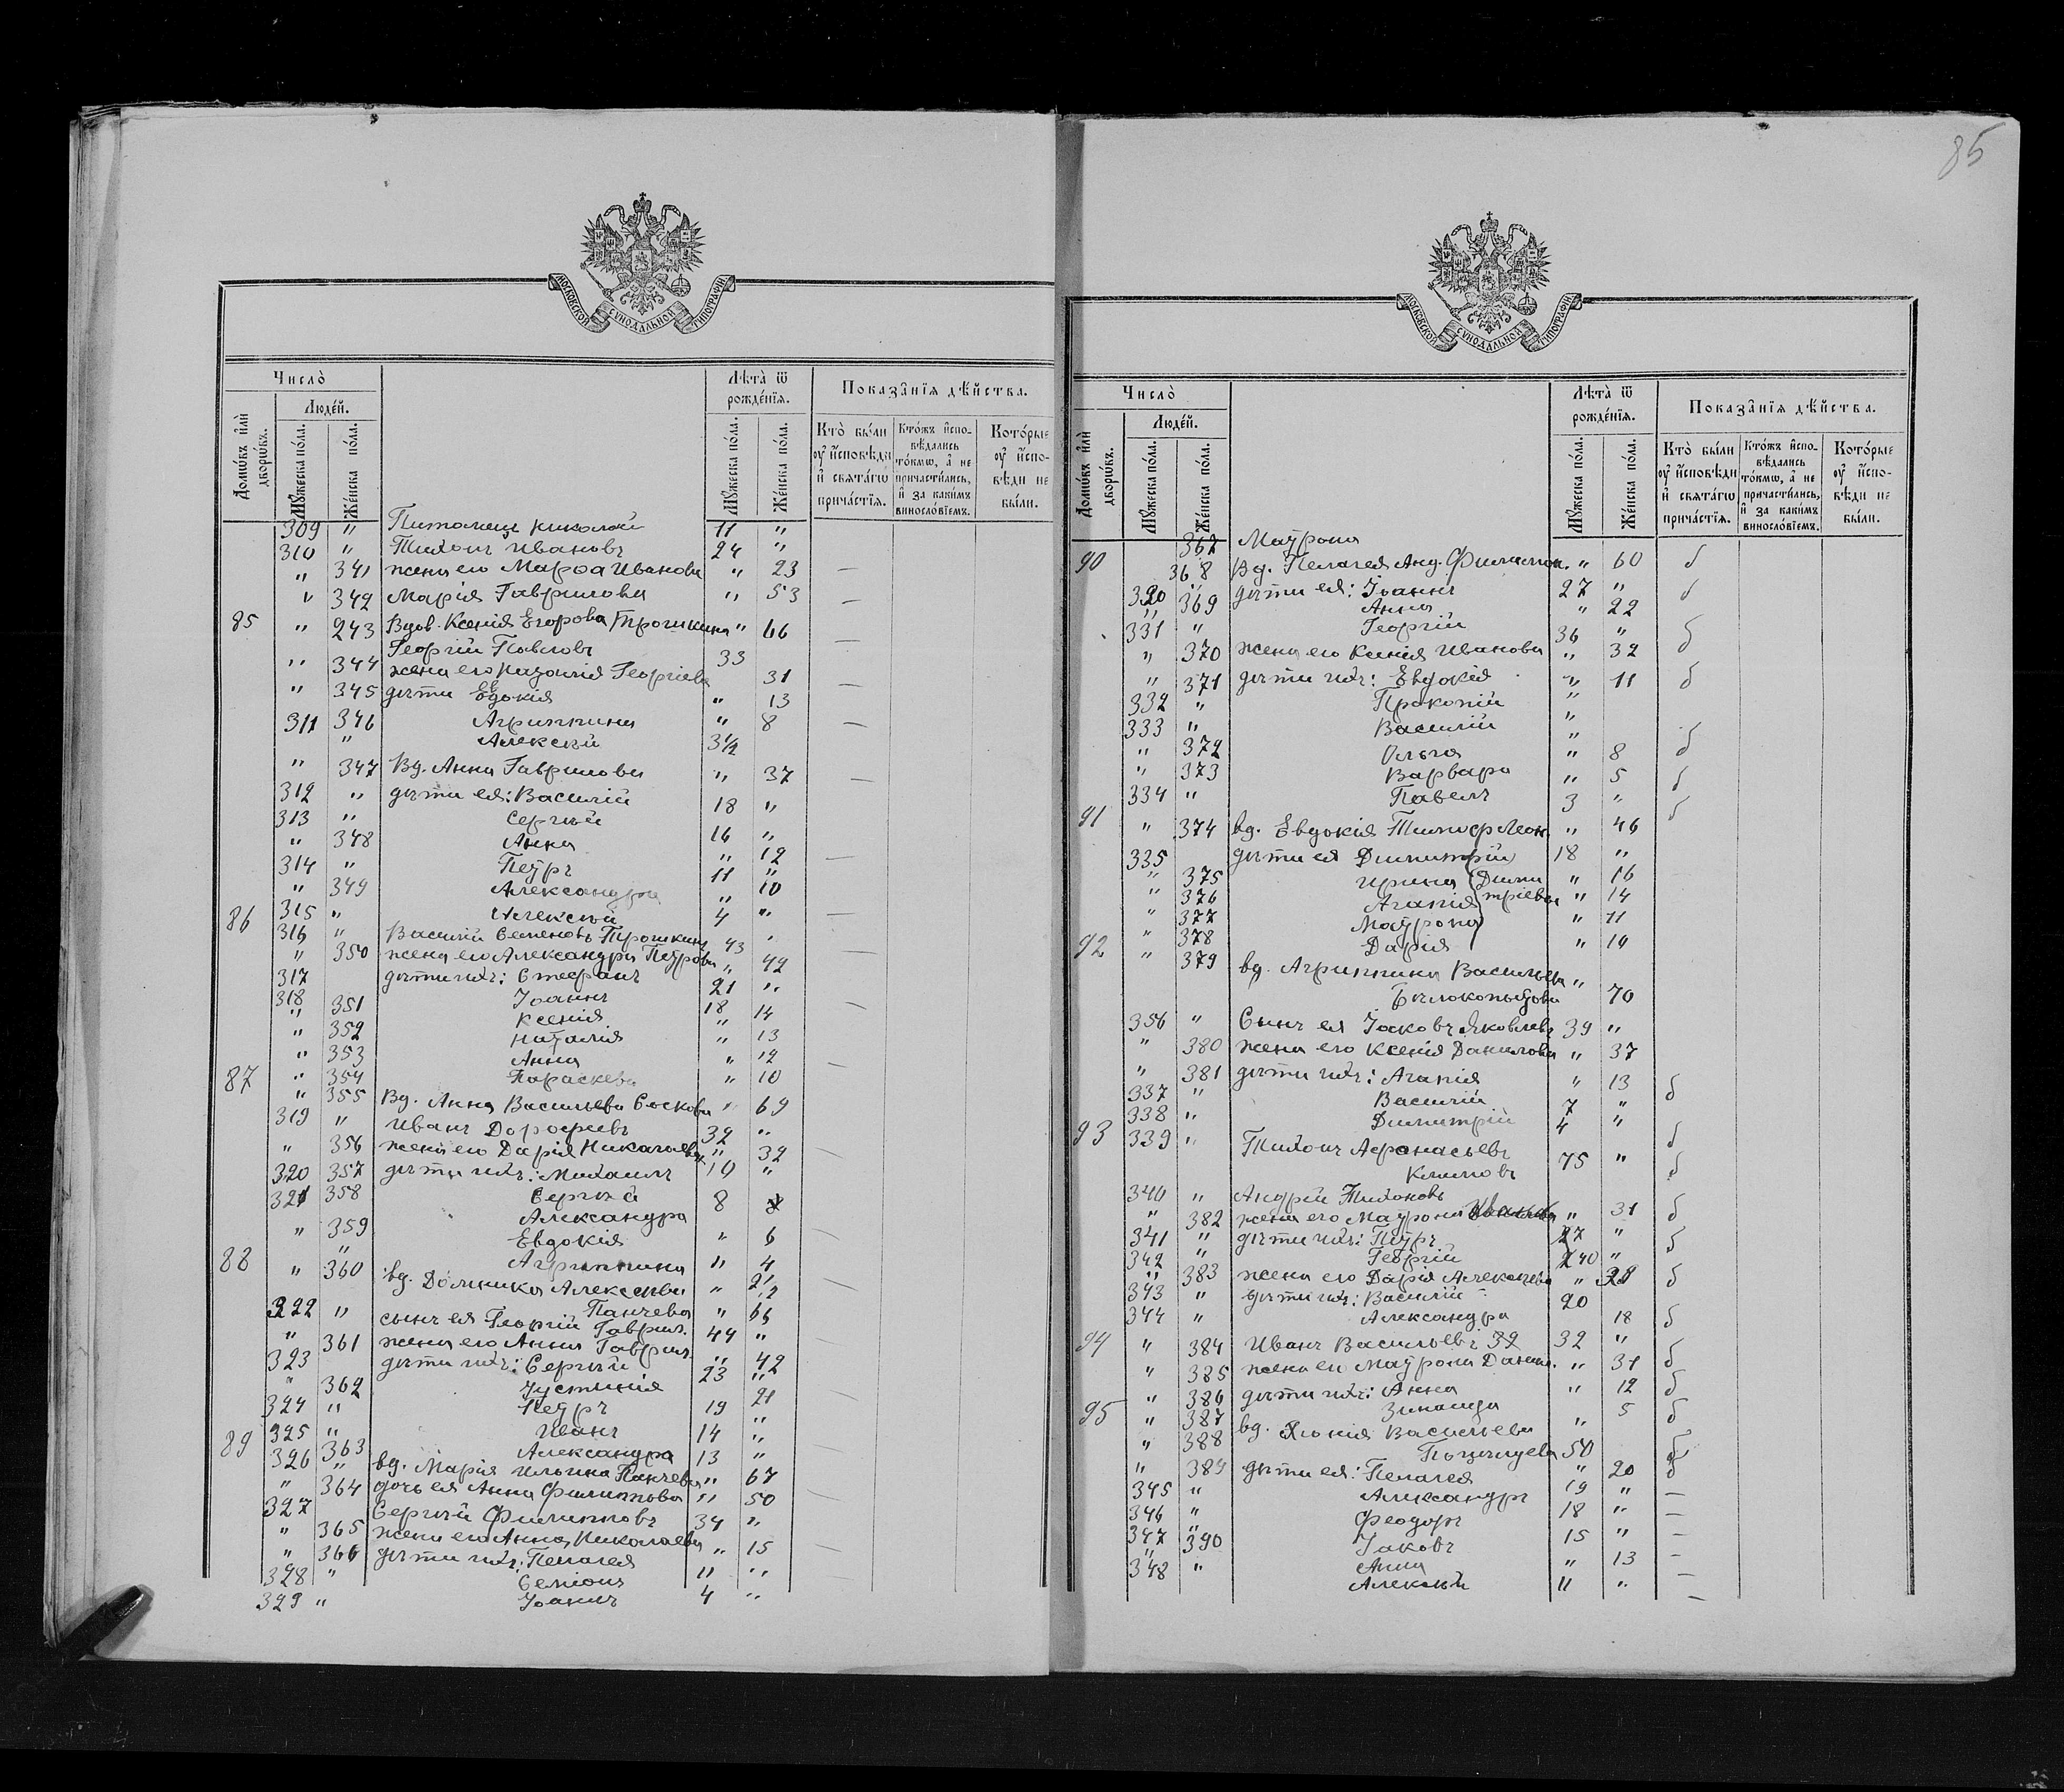 85
МОСКОВСКОЙ СѴНОДАЛЬНОЙ ТИПОГРАФІИ
Число̀
Люде́й.
Домѡ́въ и҆лѝ дворѡ́въ.
Мꙋ́жеска по́ла.
Же́нска по́ла.
Лѣ́та ѿ рожде́нїѧ.
Мꙋ́жеска по́ла.
Же́нска по́ла.
Показа̑нїѧ дѣ́йства.
Кто̀ бы́ли оу҆ и҆сповѣ́ди и҆ свѧта́гѡ прича́стїѧ.
Кто́жъ и҆спо-вѣ́дались то́кмѡ, а҆ не причасти́лись, и҆ за каки́мъ винослові́емъ.
Кото́рые оу҆ и҆спо-вѣ́ди не бы́ли.
309 " Питомецъ Николай 11 "
310 " Тихонъ Ивановъ 24 "
" 341 жена его Марѳа Иванова " 23 —
" 342 Марія Гаврилова " 53 —
85 " 243 Вдов. Ксенія Егорова Трошкина " 66 —
Георгій Павловъ 33
" 344 жена его Наталія Георгіева 31 —
" 345 дѣти Евдокія " 13
311 346 Агриппина " 8 —
" Алексѣй 3½
" 347 Вд. Анна Гаврилова " 37 —
312 " дѣти ея: Василій 18 "
313 " Сергѣй 16 "
" 348 Анна " 12 —
314 " Петръ 11 "
" 349 Александра " 10
315 " Алексѣй 4 " —
86 316 " Василій Семеновъ Трошкинъ 43 "
" 350 жена его Александра Петрова " 42 —
317 дѣти ихъ: Стефанъ 21 "
318 Іоаннъ 18
" 351 Ксенія " 14 —
" 352 Наталія " 13
" 353 Анна " 12 —
" 354 Параскева " 10
87 " 355 Вд. Анна Васильева Соскова " 69 —
319 " Иванъ Дороѳеевъ 32 "
" 356 жена его Дарія Николаева " 32 —
320 357 дѣти ихъ: Михаилъ 10 "
321 358 Сергѣй 8
" 359 Александра " 6 —
" Евдокія " 4
88 " 360 Агриппина
вд. Домника Алексѣева
Панчева " 65
322 " сынъ ея Георгій Гаврил. 44 "
" 361 жена его Анна Гаврил. " 42 —
323 дѣти ихъ: Сергѣй 23 "
" 362 Іустинія 21
324 " Петръ 19 "
325 " Иванъ 14 "
326 363 Александра 13 "
89 " вд. Марія Ильина Панчева " 67
" 364 дочь ея Анна Филиппова " 50 —
327 Сергѣй Филипповъ 34 "
" 365 жена его Анна Николаева
" 366 дѣти ихъ: Пелагея " 15 —
328 " Семіонъ 11 "
329 " Іоаннъ 4 "
МОСКОВСКОЙ СѴНОДАЛЬНОЙ ТИПОГРАФІИ
Число̀
Люде́й.
Домѡ́въ и҆лѝ дворѡ́въ.
Мꙋ́жеска по́ла.
Же́нска по́ла.
Лѣ́та ѿ рожде́нїѧ.
Мꙋ́жеска по́ла.
Же́нска по́ла.
Показа̑нїѧ дѣ́йства.
Кто̀ бы́ли оу҆ и҆сповѣ́ди и҆ свѧта́гѡ прича́стїѧ.
Кто́жъ и҆спо-вѣ́дались то́кмѡ, а҆ не причасти́лись, и҆ за каки́мъ винослові́емъ.
Кото́рые оу҆ и҆спо-вѣ́ди не бы́ли.
367 Маѵрона
90 368 Вд. Пелагея Анд. Филиппов. " 60 б
320 " дѣти ея: Іоаннъ 27 " б
" 369 Анна " 22
331 " Георгій 36 " б
" 370 жена его Ксенія Иванова " 32
" 371 дѣти ихъ: Евдокія " 11 б
332 " Прокопій "
333 " Василій "
" 372 Ольга " 8 б
" 373 Варвара " 5 б
334 " Павелъ 3 " б
91 " 374 вд. Евдокія Тимоф Леон. " 46
335 дѣти ея Димитрій 18 "
" 375 Ирина (Дими " 16
" 376 Агапія тріевы " 14
" 377 Маѵрона " 11
" 378 Дарія " 10
92 " 379 вд. Агриппина Васильева "
Бѣлокопытова 70
356 " Сынъ ея Іаковъ Яковлевъ 39 "
" 380 жена его Ксенія Данилова " 37
" 381 дѣти ихъ: Агапія " 13 б
337 " Василій 7 "
338 " Димитрій 4 "
93 339 " Тихонъ Аѳанасьевъ 75 " б
Климовъ б
340 " Андрѣй Тихоновъ
" 382 жена его Маѵрона " 31 б
341 " дѣти ихъ: Петръ 27 " б
342 " Георгій 40 "
" 383 жена его Дарія Алексѣева " 38 б
343 " дѣти ихъ: Василій 20
344 " Александра 18 б
94 " 384 Иванъ Васильевъ 32 32 "
" 385 жена его Маѵрона Данил. " 31 б
" 386 дѣти ихъ: Анна " 12 б
95 " 387 Зинаида " 5 б
" 388 вд. Васильева
50 б
" 389 дѣти ея: Пелагея " 20 б
345 " Александръ 19 " —
346 " Ѳеодоръ 18 " —
347 " Іаковъ 15 " —
" 390 Анна " 13 —
348 " Алексѣй 11 " —